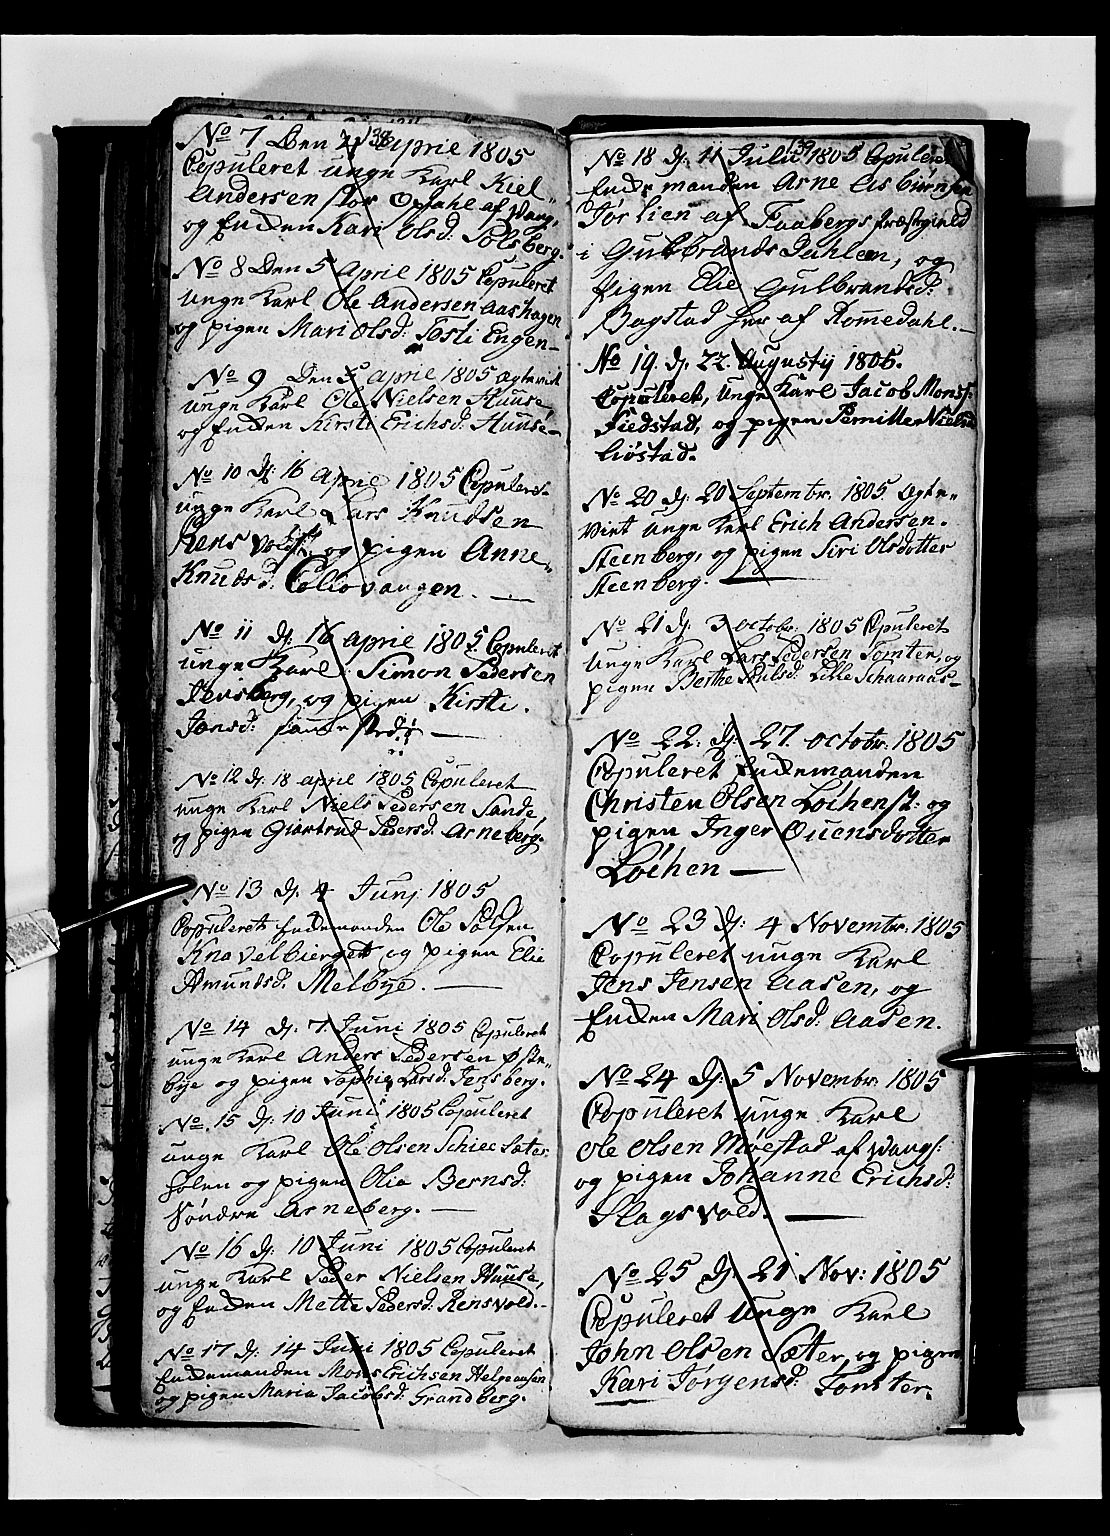 138
No 7 Den 2 April 1805
Copuleret unge Karl Kiel
Andersen stor Opsahl af Vang,
og Enken Kari Olsd: Solsberg.
No 8 Den 5 April 1805 Copuleret
unge Karl Ole Andersen Aashagen
og pigen Mari Olsd: Tosti Engen —
No 9 Den 5 april 1805 Ægteviet
unge Karl Ole Nielsen Huuse,
og Enken Kirsti Erichsd: Huuse —
No 10 Dj: 16 April 1805 Copuleret
unge Karl Lars Knudsen
Rensvold, og pigen Anne
Knudsd: Coliovangen. —
No 11 dj: 16 april 1805 Copuleret
unge Karl Simon Pedersen
Jensberg, og pigen Kirsti
Jensd:
No 12 dj: 18 april 1805 Copuleret
unge Karl Niels Pedersen Sande,
og pigen Giertrud Pedersd: Arneberg.
No 13 dj. 4 Junj 1805
Copuleret Enkemanden Ole
Knavelbierget og pigen Elie
Amundsd. Melbye. —
No 14 dj. 7 Juni 1805 Copuleret
unge Karl Anders Pedersen Øste-
bye og pigen Sophia Larsd: Jensberg.
No. 15 dj. 10 Juni 1805 Copuleret
unge Karl Ole Olsen Schiee Sæter
Holen og pigen Olia Bernsd:
Søndre Arneberg. —
No 16 dj. 10 Juni 1805 Copuleret
unge Karl Peder Nielsen Huuse,
og Enken Mette Pedersd: Rensvold. —
No 17 dj: 14 Juni 1805 Copuleret
Enkemanden Mons Erichsen Helgeausen
og pigen Maria Jacobsd: Grandberg.
139
No 18 dj: 11 Julii 1805 Copuleret
Enkemanden Arne Eisbiørnsen
Jørlien af Faabergs Præstegield
i Gulbrands Dahlen, og
Pigen Elie Gulbrandsd:
Bagstad her af Rommedahl. —
No 19. dj. 22. Augustij 1805.
Copuleret, unge Karl Jacob Mons:
Fiedstad, og pigen Pernille Nielsd
Liöstad.
No 20 dj: 20 Septembr. 1805 Ægte-
viet unge Karl Erich Andersen
Steenberg, og pigen Siri Olsdotter
Steenberg. —
No. 21 dj. 3 octobr: 1805 Copuleret
unge Karl Lars Pedersen Tomter, og
pigen Berthe Poulsd: Lille Schaaraas —
No 22. dj: 27. octobr: 1805
Copuleret Enkemanden
Christen Olsen Löthenst: og
pigen Inger Ouensdotter
Löthen —
No 23 dj: 4 Novembr. 1805
Copuleret unge Karl
Jens Jensen Aasen, og
Enken Mari Olsd: Aasen.
No 24 dj: 5 Novembr. 1805
Copuleret unge Karl
Ole Olsen Møestad af Vangs:
og pigen Johanne Erichsd:
Slagsvold. —
No 25 dj. 21 Nov: 1805
Copuleret unge Karl
John Olsen Sæter, og pigen
Kari Jørgensd: Tomter.